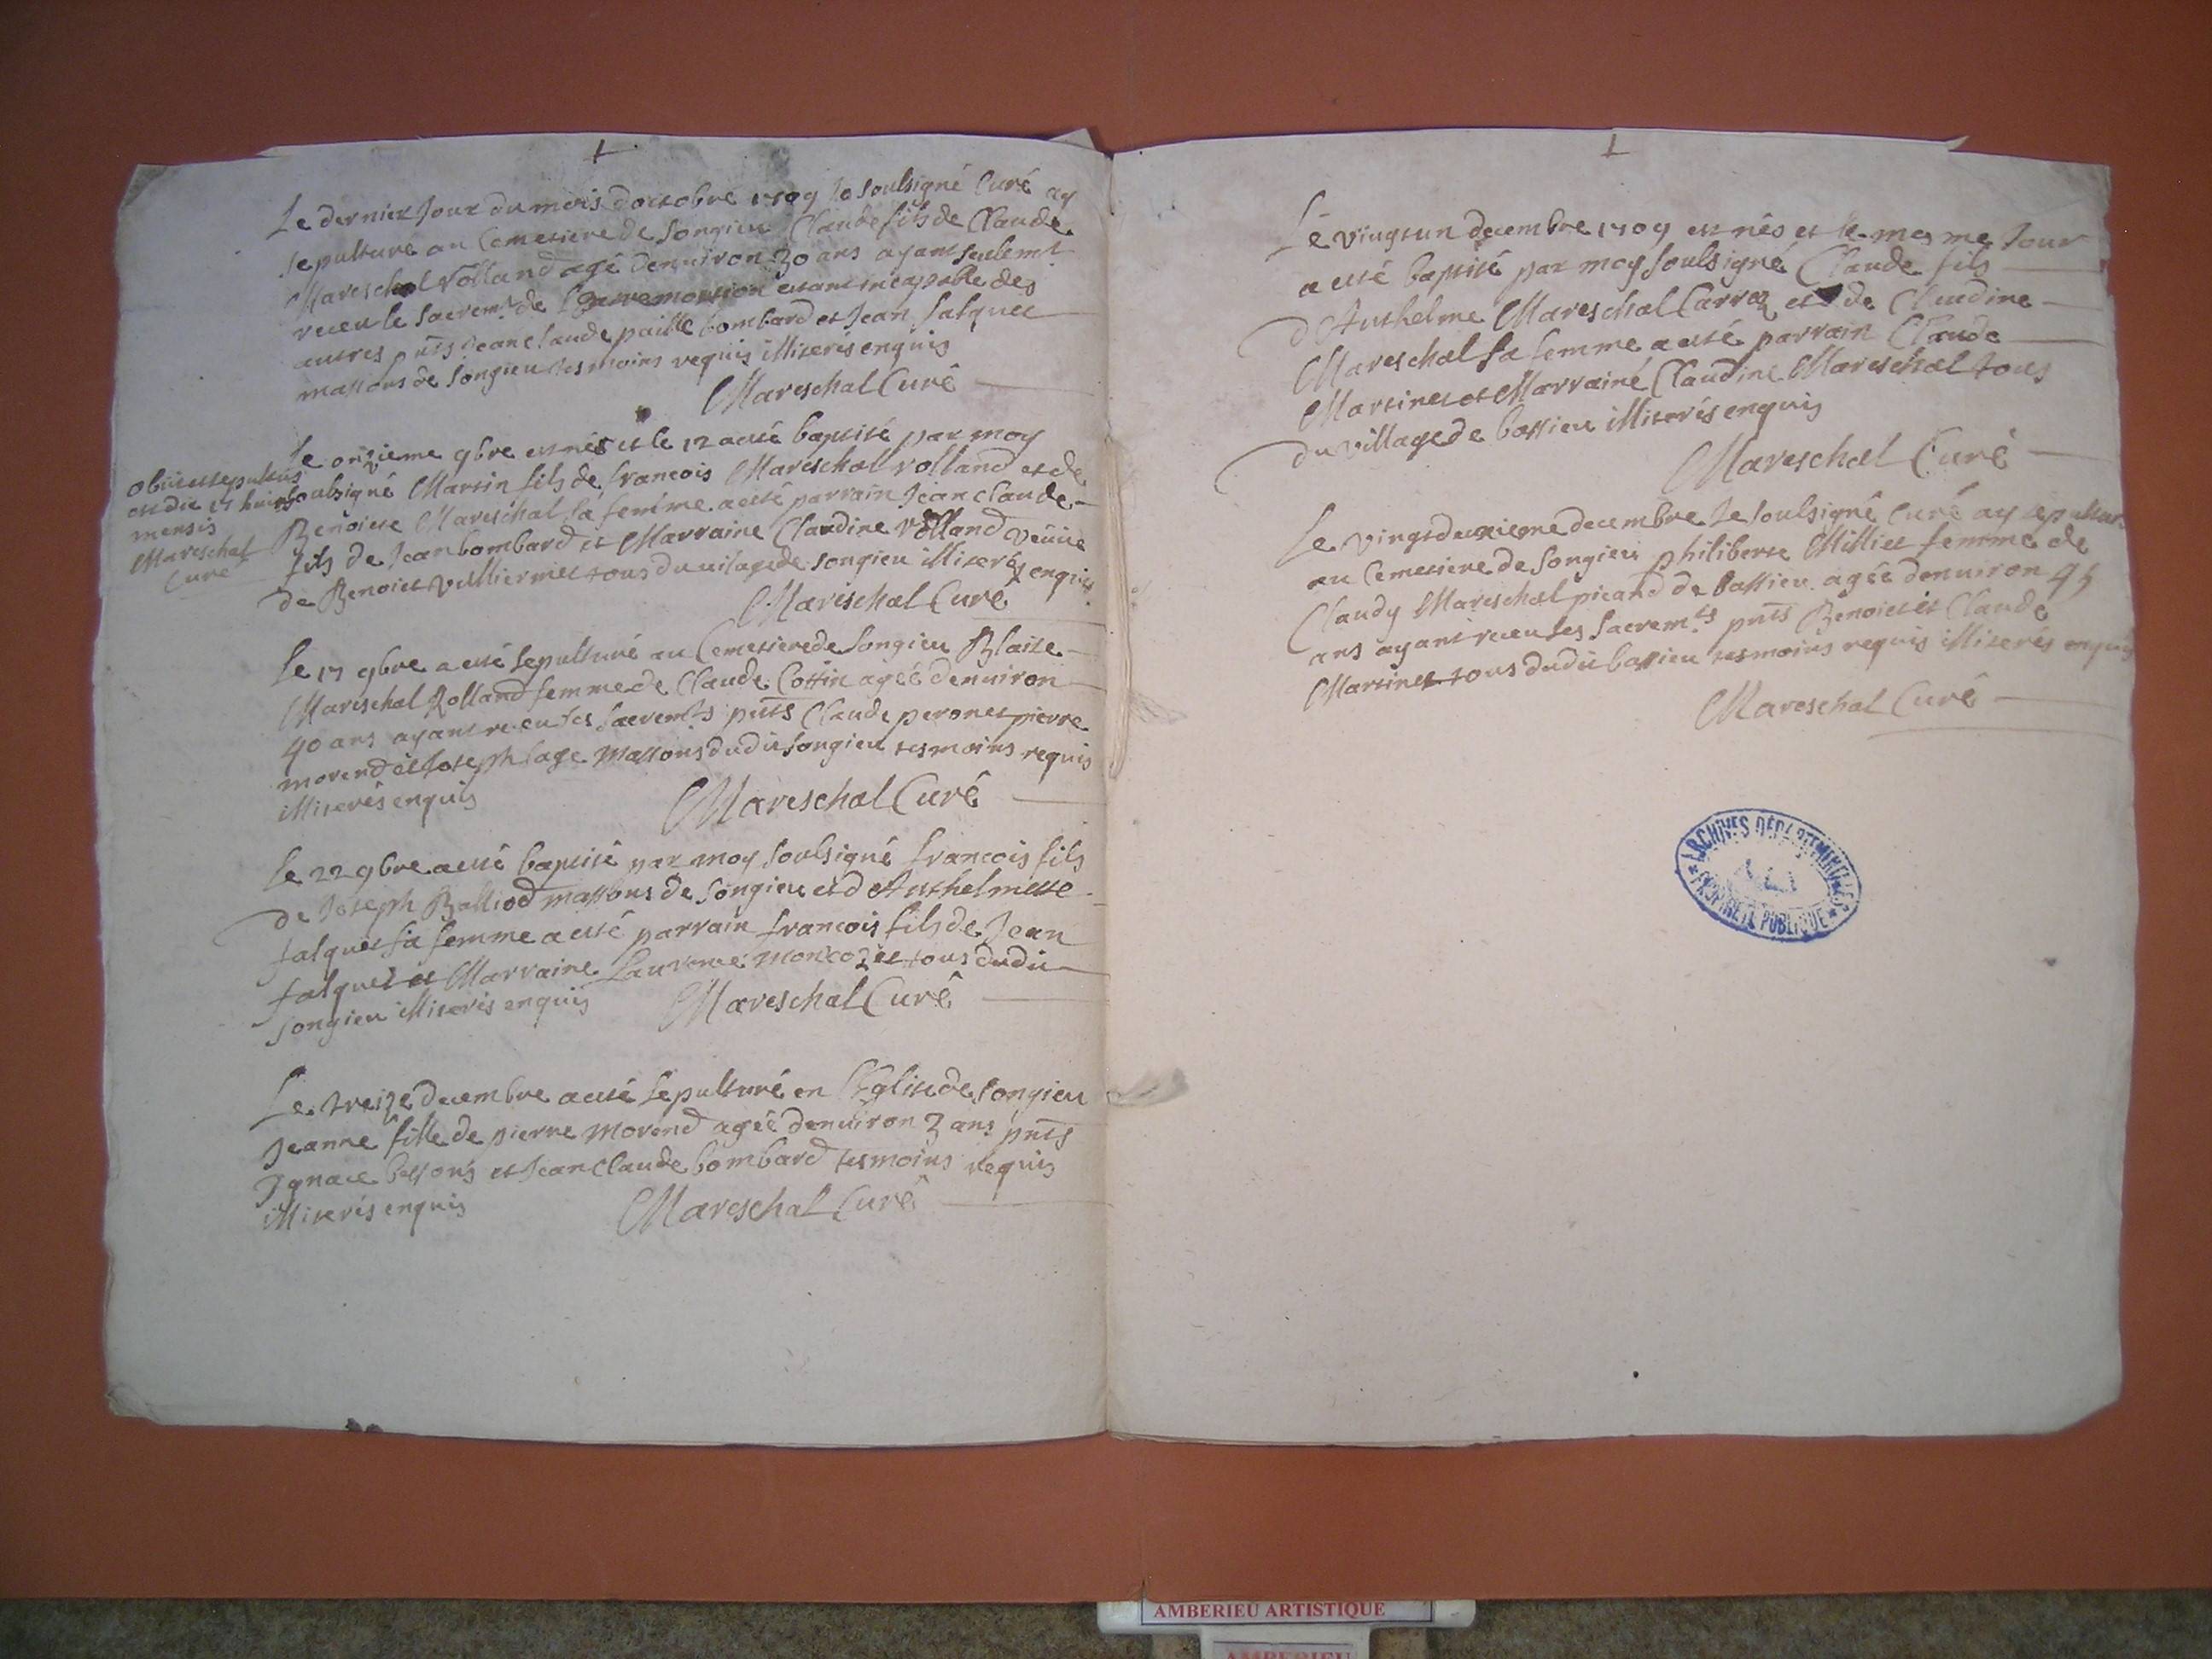 Le dernier Jour du mois doctobre 1709 Je soulsigné Curé ay
sepulturé au Cemetiere de songieu Claude fils de Claude
Mareschal Volland agé denuiron 30 ans ayant seulemt
receu le sacremt de Lextremontion estant incapable des
autres pnts Jean Claude paille bombard et Jean falquet
massons de songieu tesmoins requis illiterés enquis
Mareschal Curé
Le onzieme 9bre est nés et le 12 a esté baptisé par moy
soubsigné Martin fils de francois Mareschal volland et de
Benoiste Mareschal sa femme a esté parrain Jean claude
fils de Jean bombard et Marraine Claudine Volland veuue
de Benoict Vulliermet tous du uilage de songieu illiterés enquis
Mareschal Curé
obiit et sepultus
est die 17 huius
mensis
Mareschal
Curé
Le 17 9bre a esté sepulturé au Cemetiere de songieu Blaise
Mareschal Rolland femme de Claude Cottin agée denuiron
40 ans ayant receu ses sacremts pnts Claude peronet pierre
morend et Joseph sage massons dudit songieu tesmoins requis
illiterés enquis
Mareschal Curé
Le 22 9bre a esté baptisé par moy soubsigné francois fils
de Joseph Balliod massons de songieu et d Anthelmette
falquet sa femme a esté parrain francois fils de Jean
falquet et Marraine Laurence moncozet tous dudit
songieu illiterés enquis
Mareschal Curé
Le treize decembre a esté sepulturé en l'Eglise de songieu
Jeanne fille de pierre Morend agée denuiron 3 ans pnts
Ignace bessons et Jean Claude bombard tesmoins requis
illiterés enquis
Mareschal Curé
Le vingt un decembre 1709 est nés et le mesme Jour
a esté baptisé par moy soulsigné Claude fils
d Anthelme Mareschal Carroz et de Claudine
Mareschal sa femme a esté parrain Claude
Martinet et Marrainé Claudine Mareschal tous
du village de bassieu illiterés enquis
Mareschal Curé
Le vingt deuxieme decembre Je soulsigné Curé ay sepulturé
au Cemetiere de songieu philiberte Milliet femme de
Claudy Mareschal picand de bassieu agée denuiron 45
ans ayant receu ses sacremts pnts Benoict et Claude
Martinet tous dudit bassieu tesmoins requis illiterés enquis
Mareschal Curé
ARCHIVES DÉPARTEMENTALES
PROPRIÉTÉ PUBLIQUE
AMBERIEU ARTISTIQUE
AMBERIEU